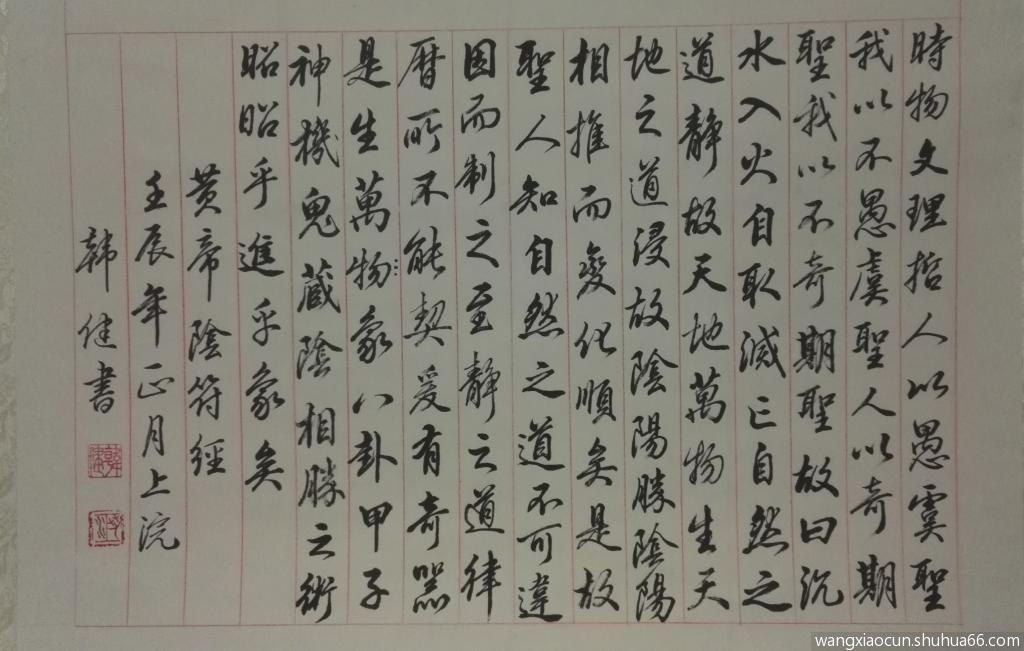 時物文理哲人以愚虞聖
我以不愚虞聖人以奇期
聖我以不奇期聖故曰沉
水入火自取滅亡自然之
道靜故天地萬物生天
地之道浸故陰陽勝陰陽
相推而變化順矣是故
聖人知自然之道不可違
因而制之至靜之道律
曆所不能契爰有奇器
是生萬物象八卦甲子
神機鬼藏陰陰相勝之術
昭昭乎進乎象矣
黄帝陰符經
壬辰年正月上浣
韩健書
wangxiaocun.shuhua66.com